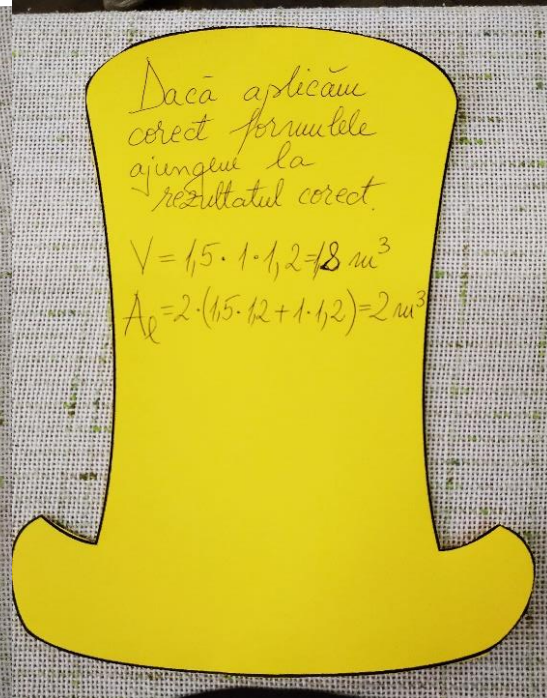 Dacă aplicăm
corect formulele
ajungem la
rezultatul corect.
V = 1,5 · 1 · 1,2 = 1,8 m³
Aₗ = 2 · (1,5 · 1,2 + 1 · 1,2) = 2 m³